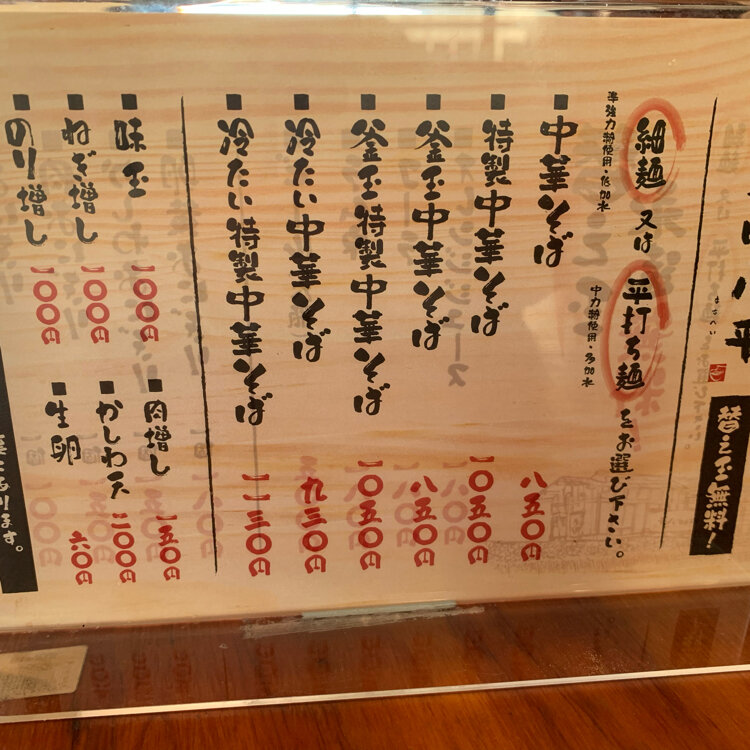 替え玉無料！
細麺 又は 平打ち麺 をお選び下さい。
準強力粉使用・低加水
中力粉使用・多加水
■中華そば 八五〇円
■特製中華そば 一〇五〇円
■釜玉中華そば 八五〇円
■釜玉特製中華そば 一〇五〇円
■冷たい中華そば 九三〇円
■冷たい特製中華そば 一一三〇円
■味玉 一〇〇円
■肉増し 一五〇円
■ねぎ増し 一〇〇円
■かしわ天 二〇〇円
■のり増し 一〇〇円
■生卵 六〇円
あります。